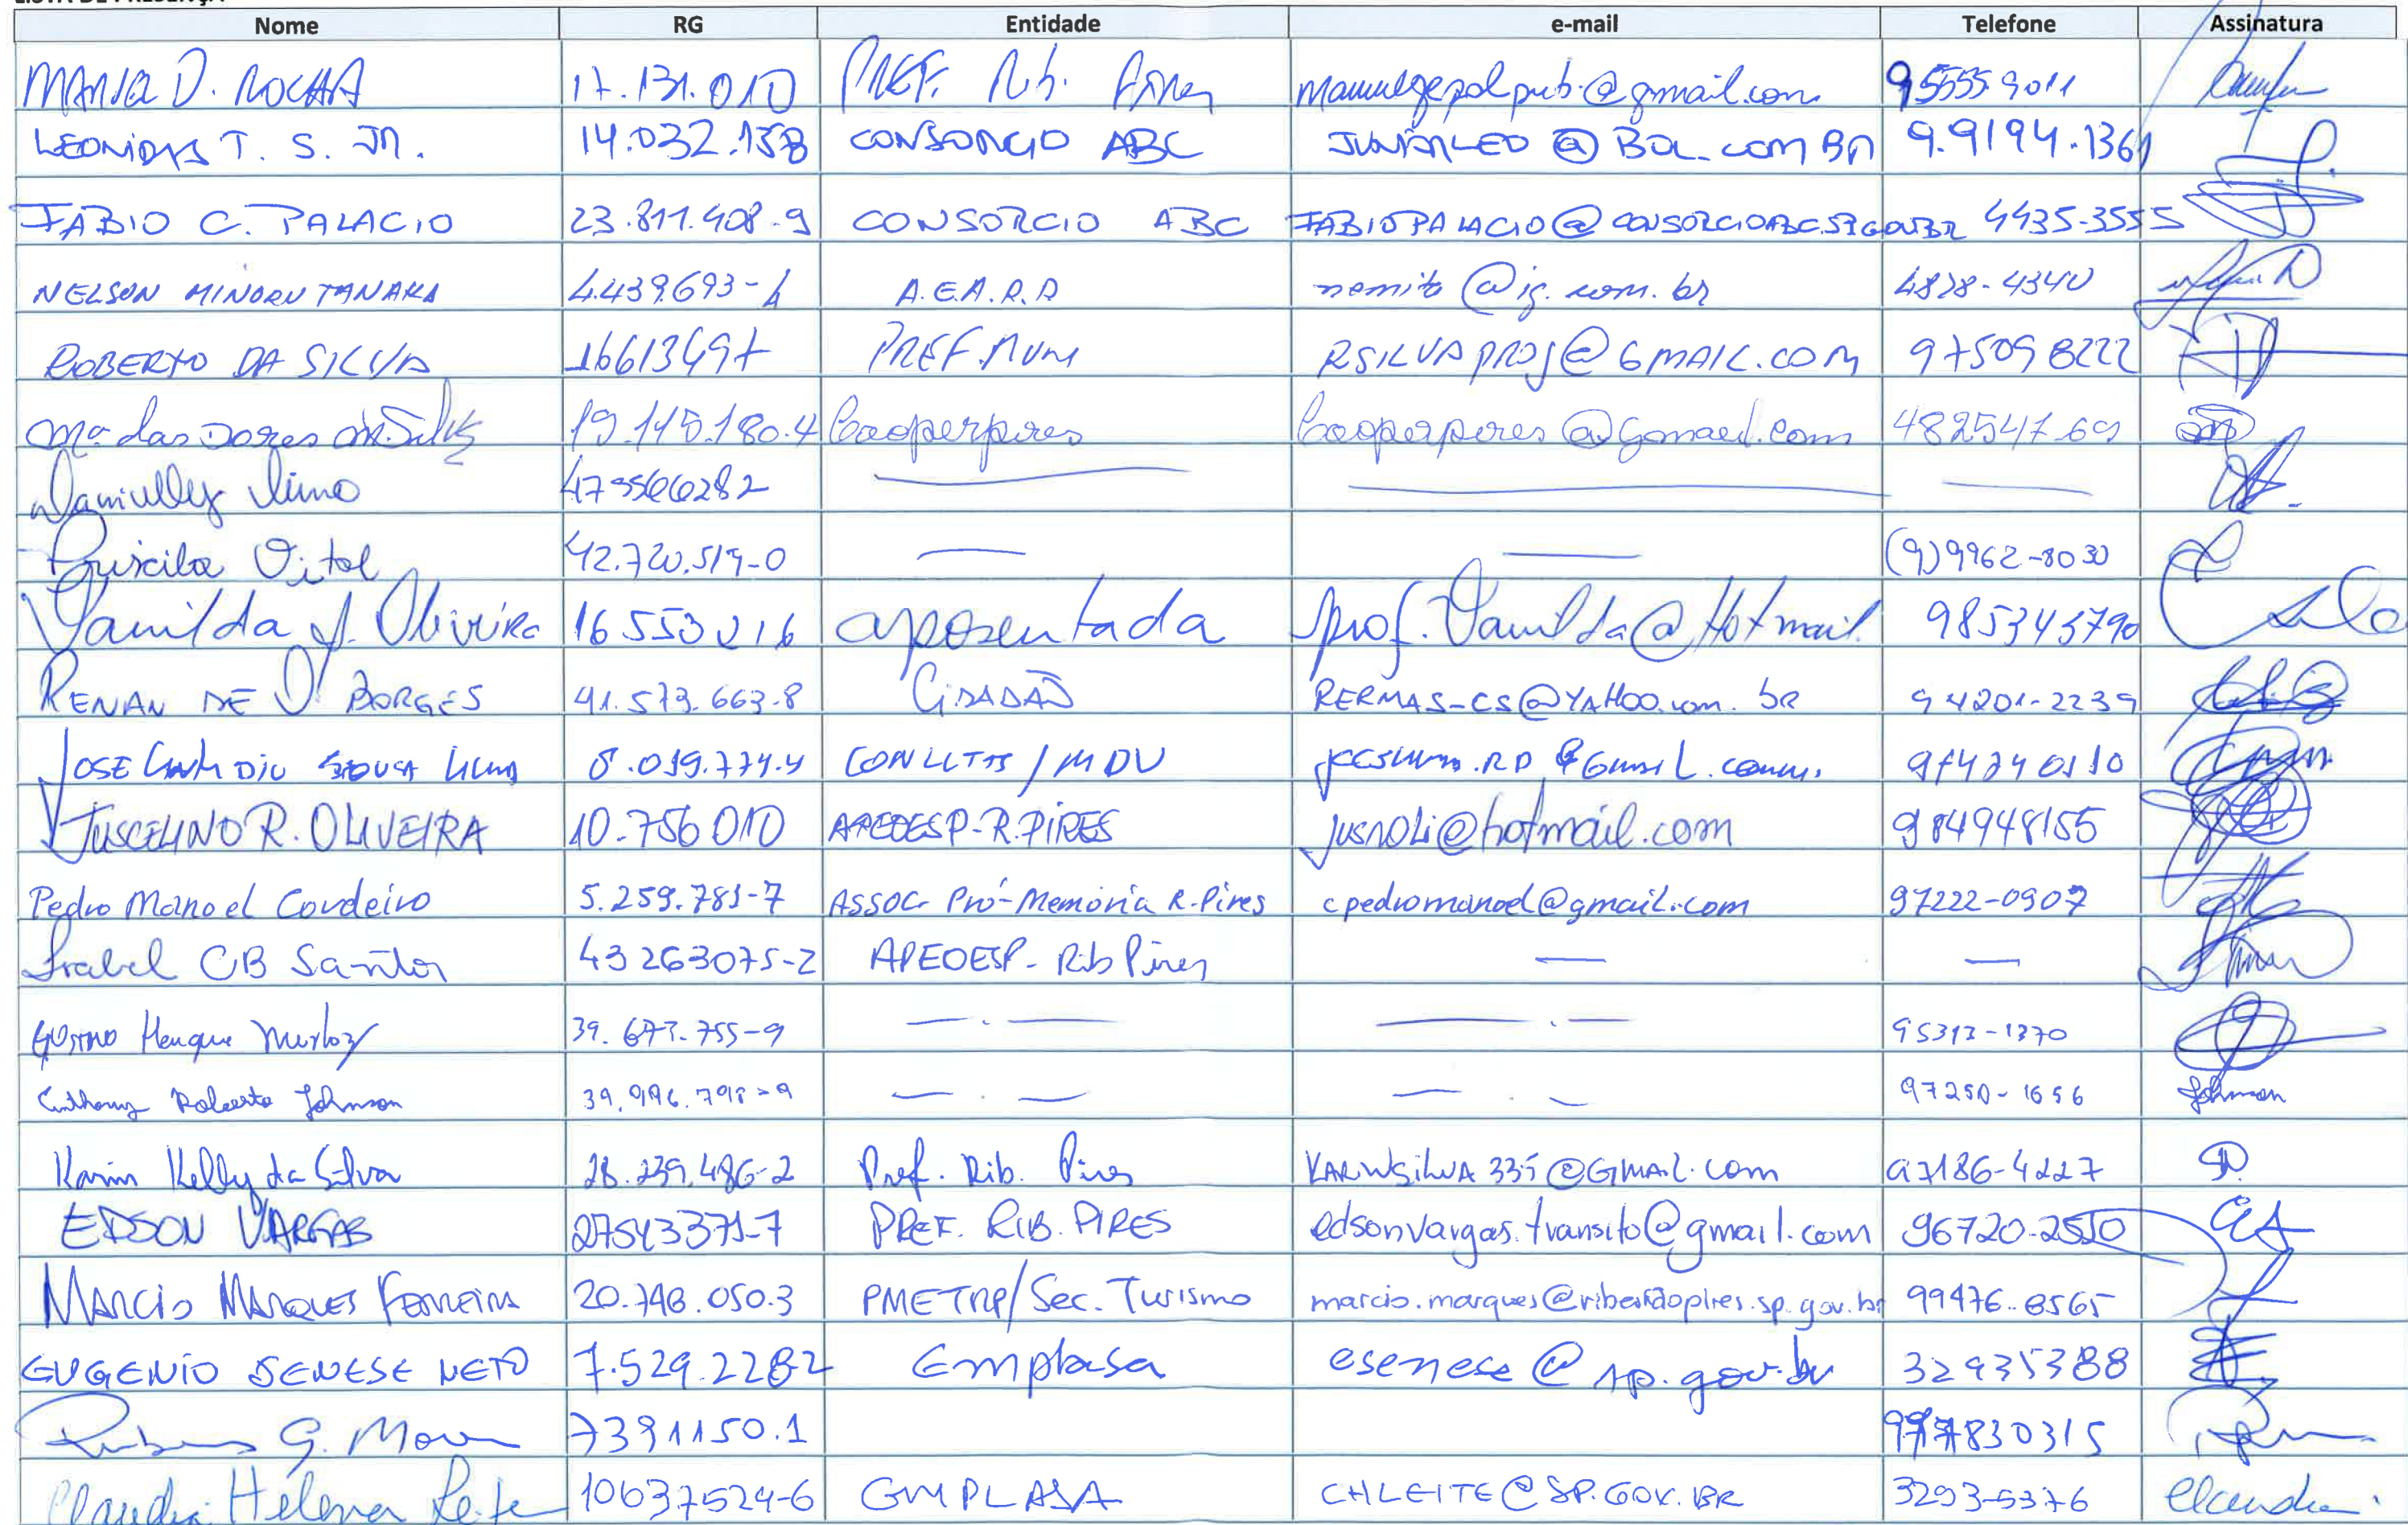 LISTA DE PRESENÇA
Nome RG Entidade e-mail Telefone Assinatura
MARIA D. ROCHA 17.131.010 PREF. Rib. Pires 95555 9011
LEONIDAS T. S. JR. 14.032.158 CONSORCIO ABC JUNIORLEO @ BOL.COM BR 9.9194.1361
FABIO C. PALACIO 23.811.408-9 CONSORCIO ABC FABIOPALACIO@CONSORCIOABC.SP.GOV.BR 4435-3555
NELSON MINORU TANAKA 4.439.693-4 A.E.A.R.P nemito @ig.com.br 4828-4340
ROBERTO DA SILVA 16613497 PREF.MUN RSILVAPROJ@GMAIL.COM 975098222
Mª das Dores da Silva 19.140.180.4 Cooperpires Cooperpires@Gmael.com 48254769
Danielly Lima 473566282
Priscila Vital 42.720.519-0 (9)9962-8030
Vanilda A. Oliveira 16 553 016 aposentada prof.Vanilda@Hotmail. 985345790
RENAN DE O. BORGES 41.573.663-8 CIDADÃO RERMAS-CS@YAHOO.com.br 94201-2239
JOSE CLAUDIO SOUSA LIMA 8.059.774.4 974740110
JUSCELINO R. OLIVEIRA 10.756 010 APEOESP-R.PIRES jusnoli@hotmail.com 984948155
Pedro Manoel Cordeiro 5.259.781-7 ASSOC. Pró-Memória R.Pires cpedromanoel@gmail.com 97222-0907
Isabel CB Santos 43 263075-2 APEOESP- Rib Pires
Gustavo Henrique 39.673.755-9 95313-1370
Anthony Roberto Johnson 39.996.798-9 97250-1656 Johnson
Karin Kelly da Silva 28.239.486-2 Pref. Rib. Pires KARINSILVA335@GMAIL.com 97186-4227
EDSON VARGAS 27543371-7 PREF. RIB. PIRES edsonvargas.transito@gmail.com 96720-2550
MARCIO MARQUES FERREIRA 20.748.050.3 PMETRP/Sec. Turismo marcio.marques@ribeirãopires.sp.gov.br 99476-8565
EUGENIO SENESE NETO 7.529.228-2 Emplasa esenese@sp.gov.br 32935388
Rubens G. Mou 7391150.1 997830315
Claudia Helena Leite 10637524-6 EMPLASA CHLEITE@SP.GOV.BR 3293-5376 Claudia